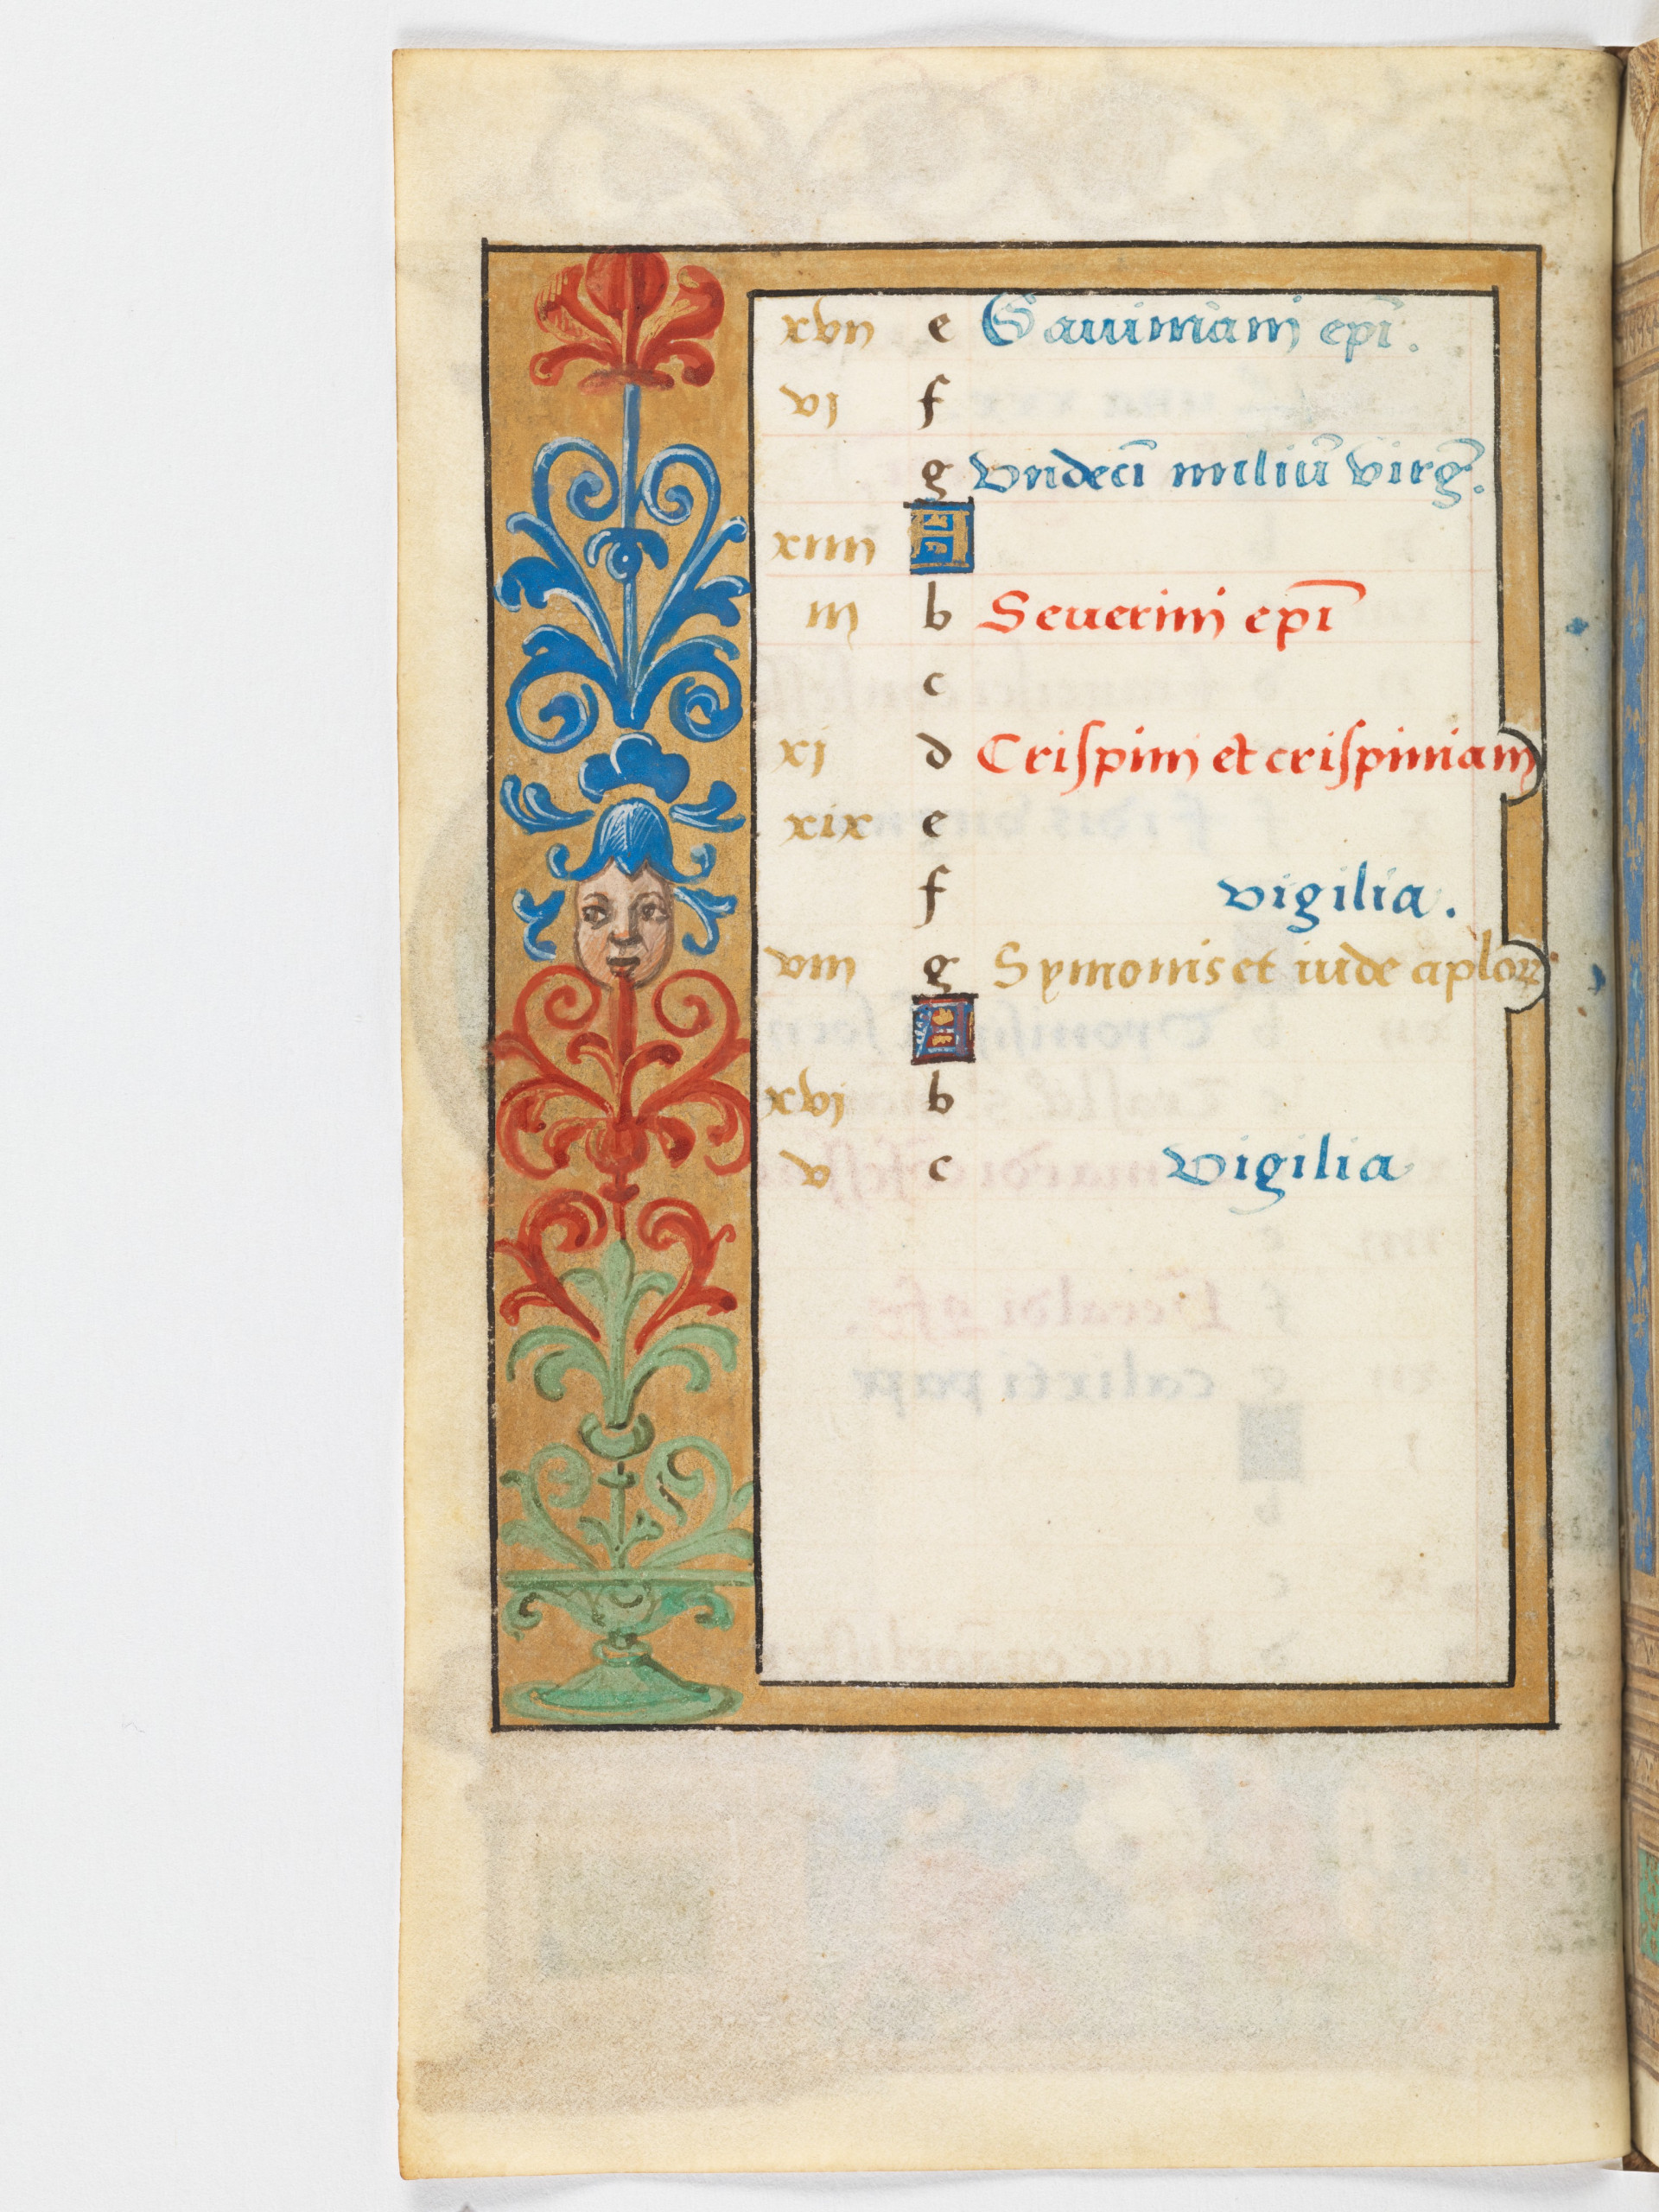 xvii e Sauiniani epī.
vi f
g vndeci miliū virg̃.
xiiii A
iii b Seuerini epī
c
xi d Crispini et crispiniani
xix e
f vigilia.
viii g Symonis et iude aplorꝝ
A
xvj b
v c vigilia